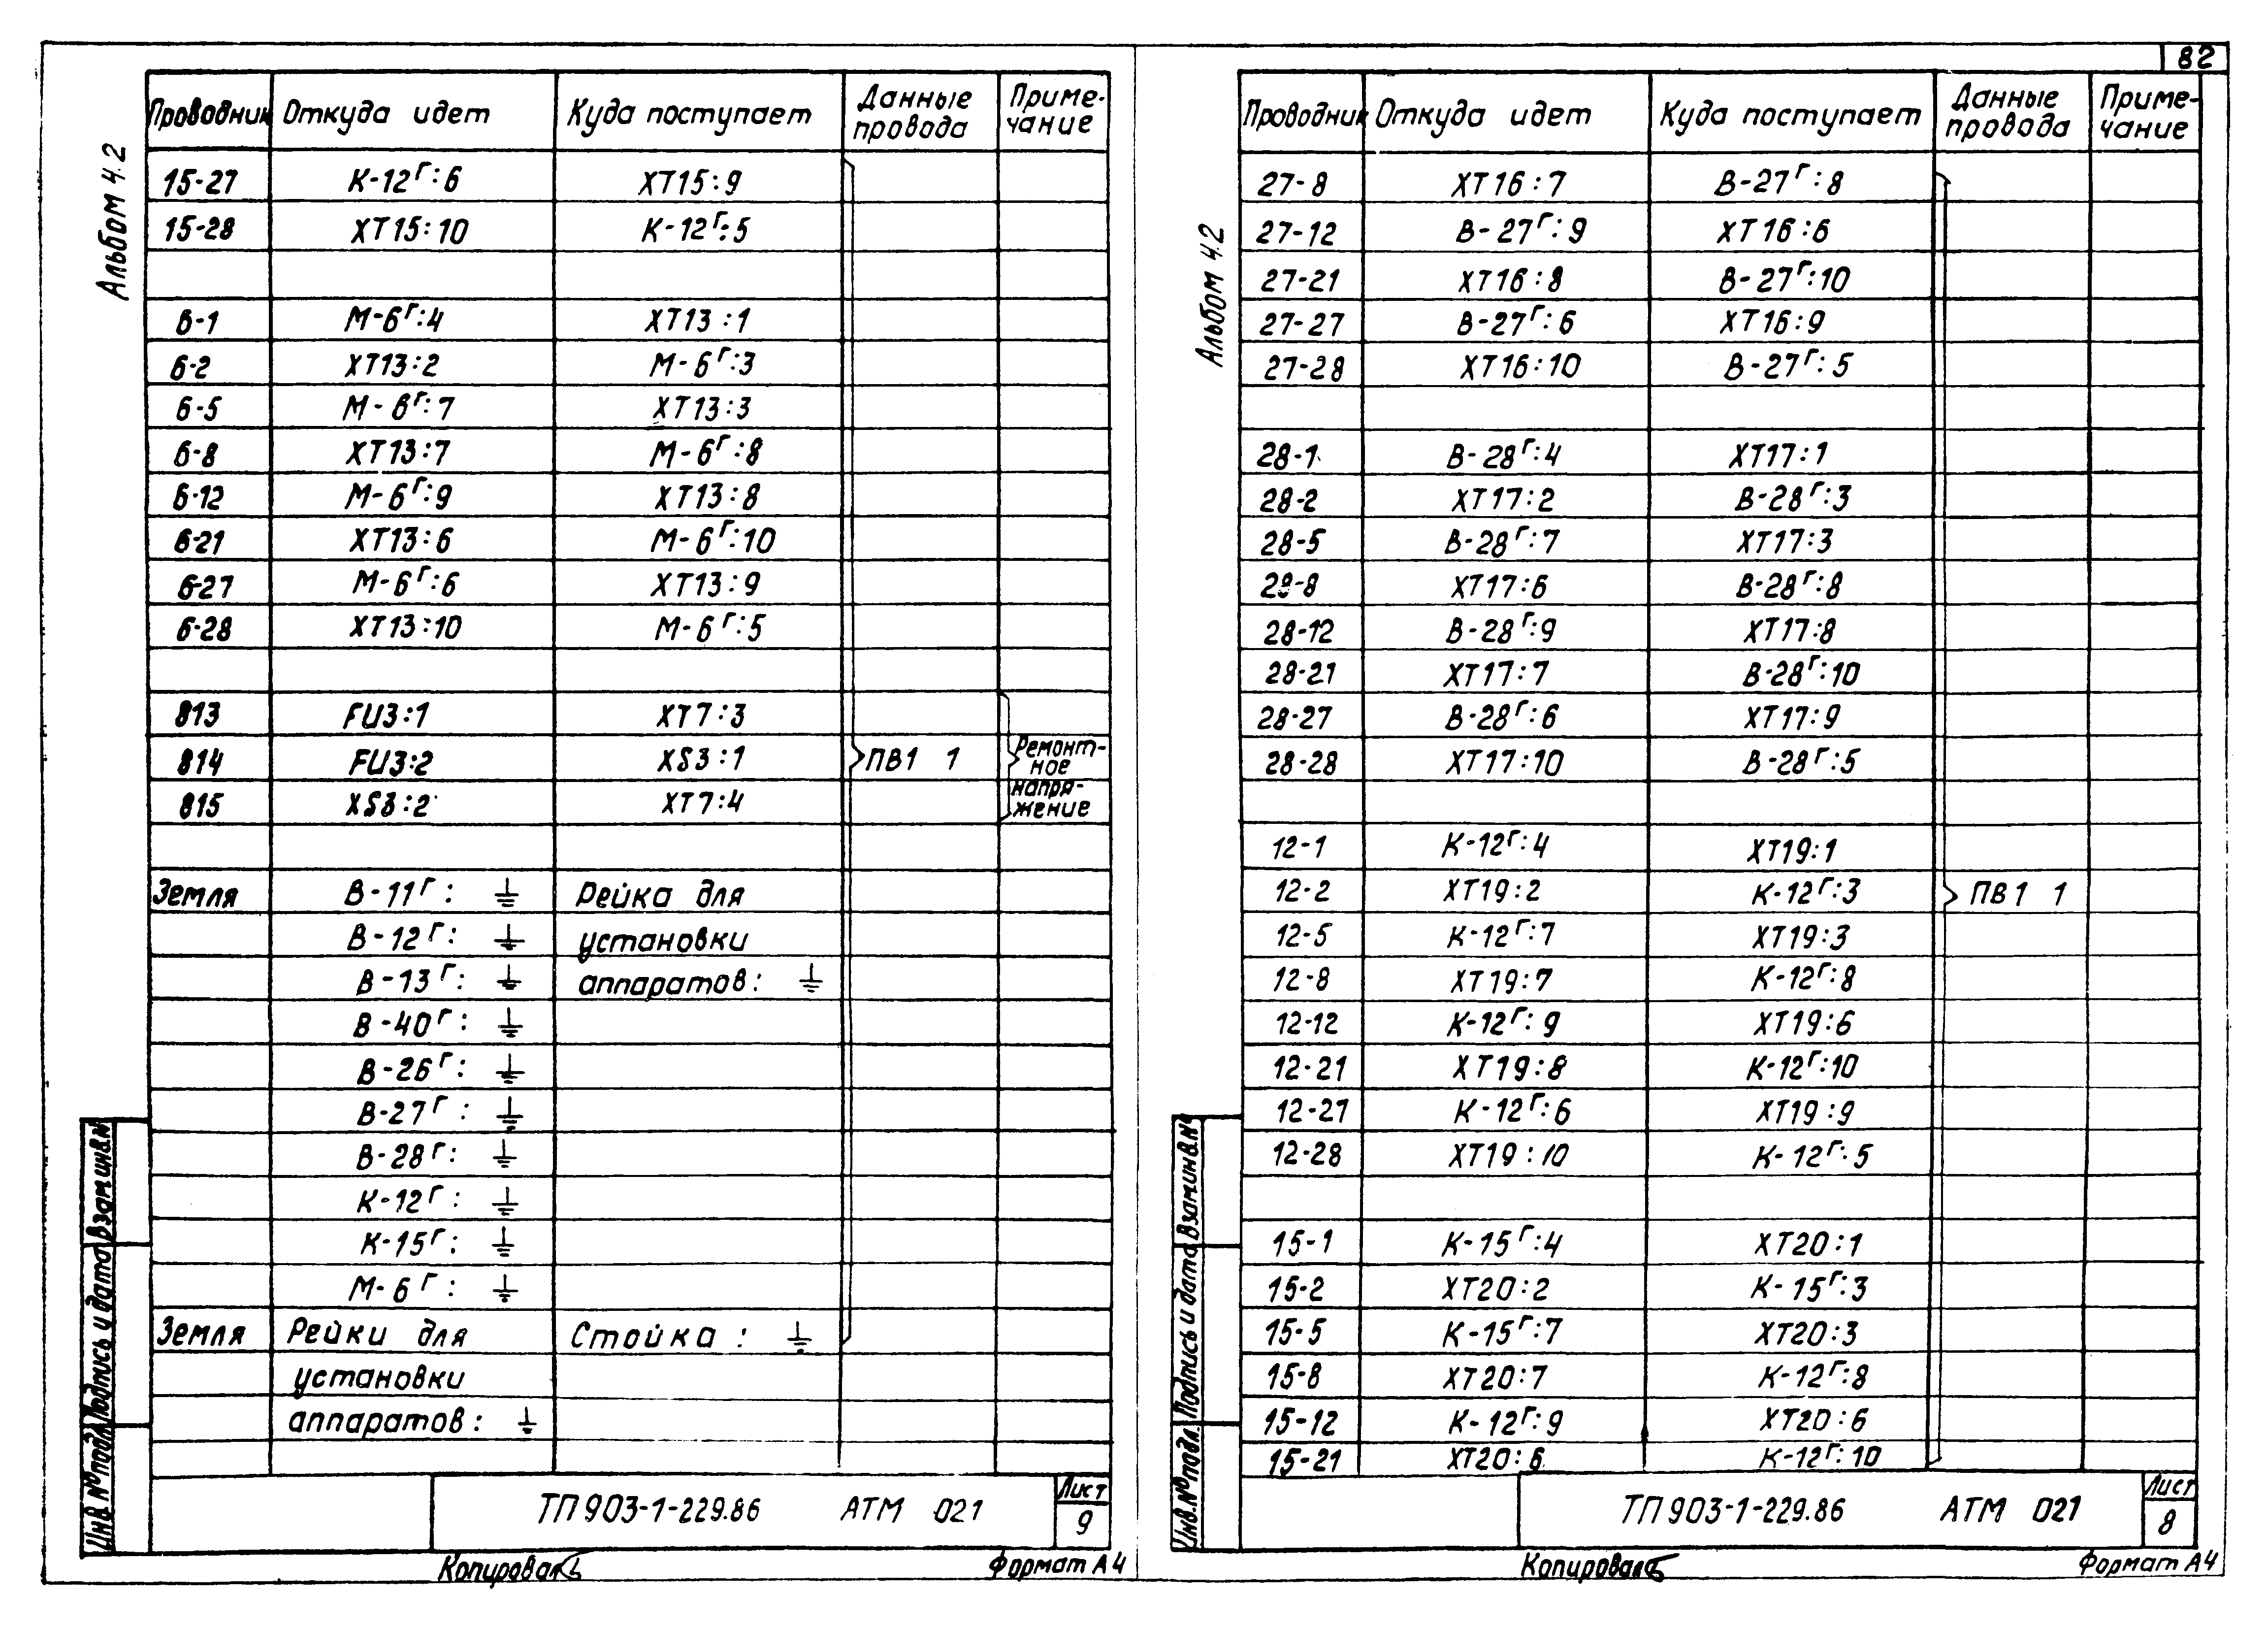 82
Альбом 4.2
Проводник Откуда идет Куда поступает Данные провода Приме-чание
15-27 К-12Г:6 ХТ15:9
15-28 ХТ15:10 К-12Г:5
6-1 М-6Г:4 ХТ13:1
6-2 ХТ13:2 М-6Г:3
6-5 М-6Г:7 ХТ13:3
6-8 ХТ13:7 М-6Г:8
6-12 М-6Г:9 ХТ13:8
6-21 ХТ13:6 М-6Г:10
6-27 М-6Г:6 ХТ13:9
6-28 ХТ13:10 М-6Г:5
813 FU3:1 ХТ7:3
814 FU3:2 XS3:1 ПВ1 1 Ремонт-ное
815 XS3:2 ХТ7:4 напря-жение
Земля В-11Г: ⏚ Рейка для
В-12Г: ⏚ установки
В-13Г: ⏚ аппаратов: ⏚
В-40Г: ⏚
В-26Г: ⏚
В-27Г: ⏚
В-28Г: ⏚
К-12Г: ⏚
К-15Г: ⏚
М-6Г: ⏚
Земля Рейки для Стойка: ⏚
установки
аппаратов: ⏚
Инв.№подл. Подпись и дата Взам.инв.№
ТП903-1-229.86 АТМ 021 Лист 9
Копировал Формат А4
Альбом 4.2
Проводник Откуда идет Куда поступает Данные провода Приме-чание
27-8 ХТ16:7 В-27Г:8
27-12 В-27Г:9 ХТ16:6
27-21 ХТ16:8 В-27Г:10
27-27 В-27Г:6 ХТ16:9
27-28 ХТ16:10 В-27Г:5
28-1 В-28Г:4 ХТ17:1
28-2 ХТ17:2 В-28Г:3
28-5 В-28Г:7 ХТ17:3
28-8 ХТ17:6 В-28Г:8
28-12 В-28Г:9 ХТ17:8
28-21 ХТ17:7 В-28Г:10
28-27 В-28Г:6 ХТ17:9
28-28 ХТ17:10 В-28Г:5
12-1 К-12Г:4 ХТ19:1
12-2 ХТ19:2 К-12Г:3 ПВ1 1
12-5 К-12Г:7 ХТ19:3
12-8 ХТ19:7 К-12Г:8
12-12 К-12Г:9 ХТ19:6
12-21 ХТ19:8 К-12Г:10
12-27 К-12Г:6 ХТ19:9
12-28 ХТ19:10 К-12Г:5
15-1 К-15Г:4 ХТ20:1
15-2 ХТ20:2 К-15Г:3
15-5 К-15Г:7 ХТ20:3
15-8 ХТ20:7 К-12Г:8
15-12 К-12Г:9 ХТ20:6
15-21 ХТ20:6 К-12Г:10
Инв.№подл. Подпись и дата Взам.инв.№
ТП903-1-229.86 АТМ 021 Лист 8
Копировал Формат А4